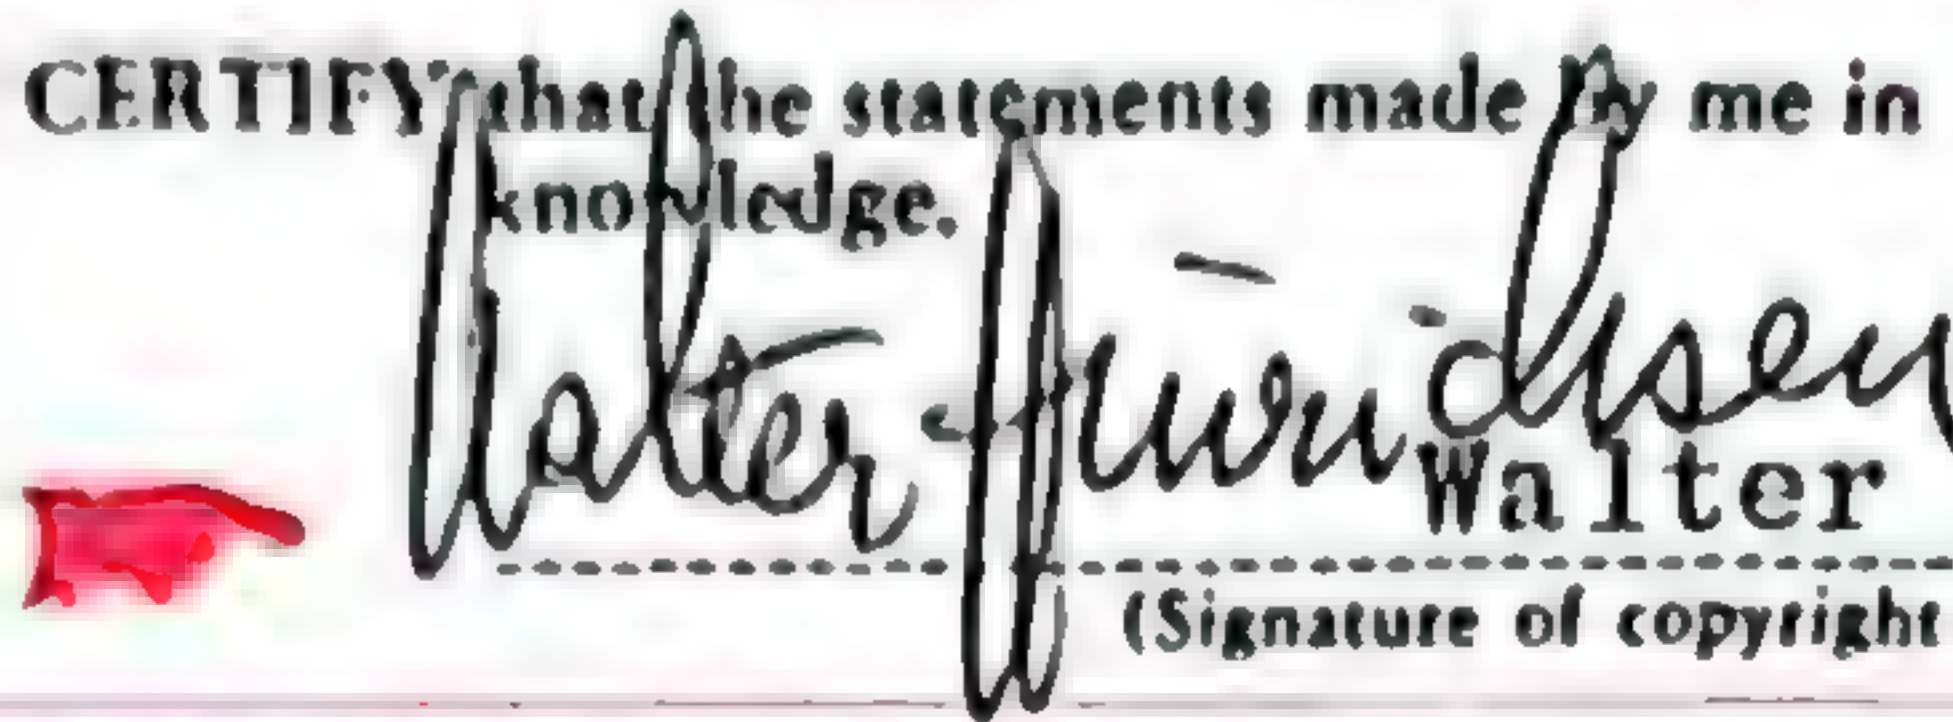 CERTIFY that the statements made by me in
knowledge.
Walter
Walter
(Signature of copyright